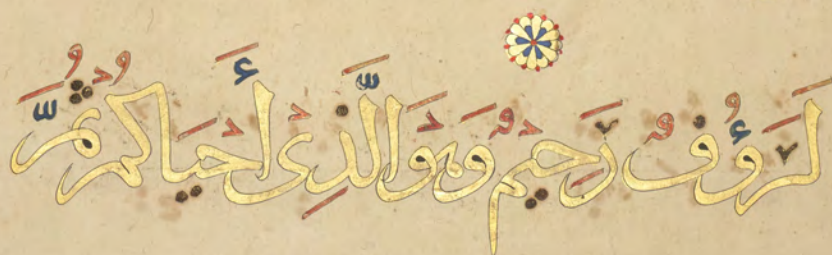 لَرَءُوفٌ رَّحِيمٌ وَهُوَ الَّذِي أَحْيَاكُمْ ثُمَّ